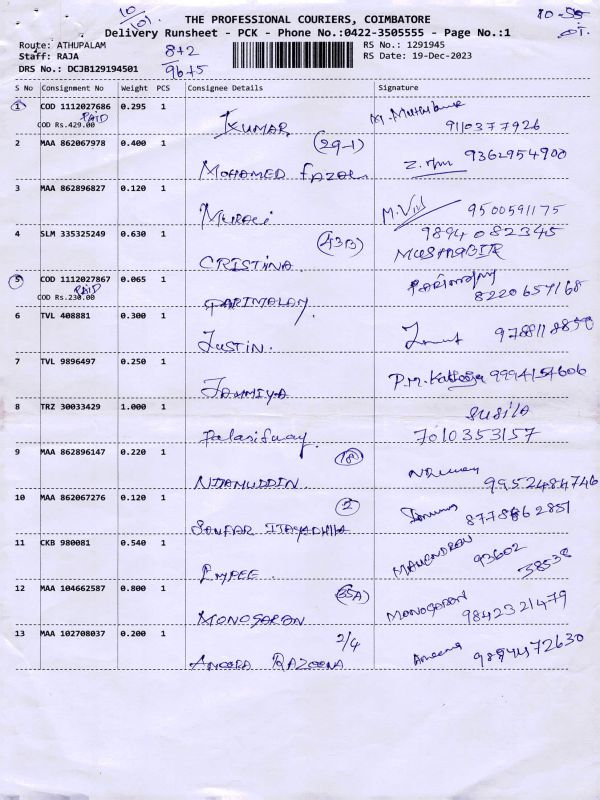 10
101
THE PROFESSIONAL COURIERS, COIMBATORE
10-55
Delivery Runsheet - PCK - Phone No.:0422-3505555 - Page No.:1
Route: ATHUPALAM
8+2
RS No.: 1291945
Staff: RAJA
RS Date: 19-Dec-2023
DRS No.: DCJB129194501
9b+5
S No Consignment No Weight PCS Consignee Details Signature
1 COD 1112027686 0.295 1
COD Rs.429.00 PAID
KUMAR
9110377926
2 MAA 862067978 0.400 1 (29-1)
MOHAMED FAZAL
9362954900
3 MAA 862896827 0.120 1
MURALI
9500591175
4 SLM 335325249 0.630 1 (43B) 9894082345
CRISTINA MUSTHABIR
5 COD 1112027867 0.065 1
COD Rs.230.00 PAID
PARIMALAM 8220657168
6 TVL 408881 0.300 1
JUSTIN. 9788118850
7 TVL 9896497 0.250 1
9994154606
8 TRZ 30033429 1.000 1 SUSILA
7010353157
9 MAA 862896147 0.220 1
NIJAMUDDIN 9952484746
10 MAA 862067276 0.120 1 2
8778862851
11 CKB 980081 0.540 1 MAHENDRAN 93602
EMPEE 38538
12 MAA 104662587 0.800 1 (35A) MONOGARAN
MONOGARAN 9842321479
13 MAA 102708037 0.200 1 2/4
RAZEENA 9894472630